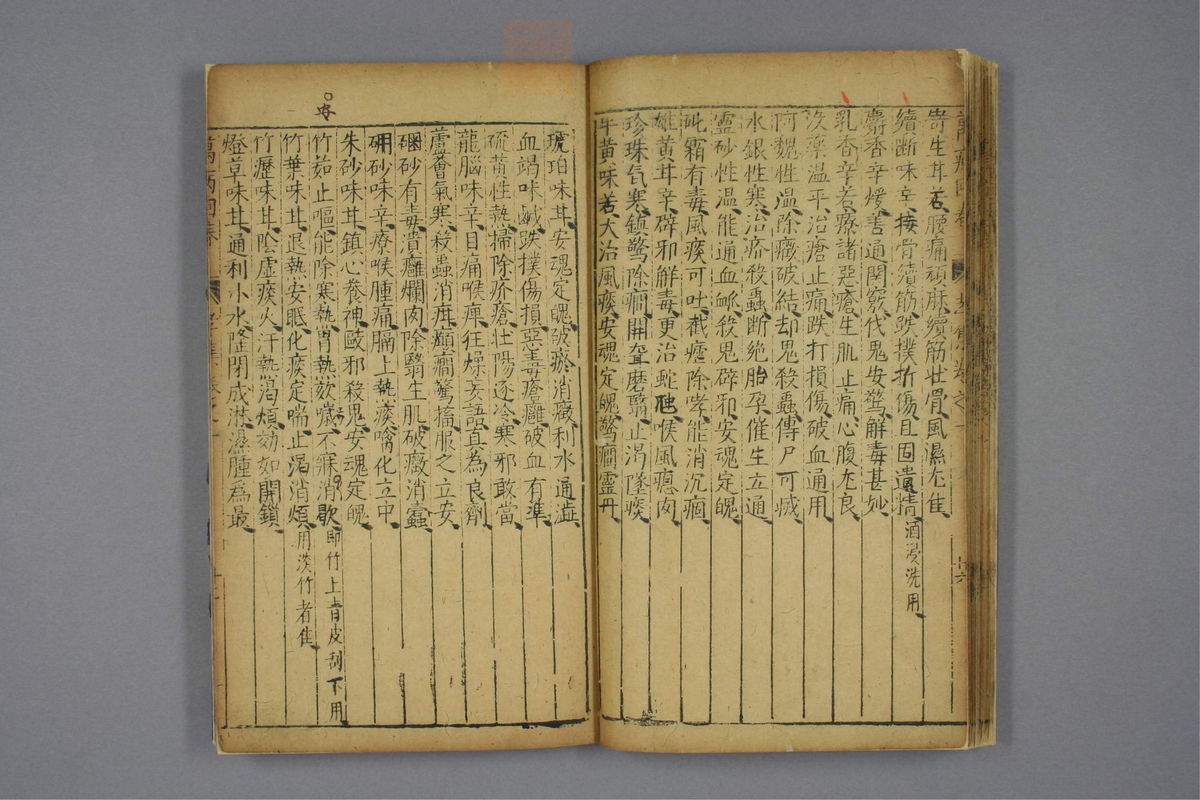 寄生甘苦腰痛頑麻續筋壯骨風濕尤佳
續斷味辛接骨續筋跌撲折傷且固遺精 酒浸洗用
麝香辛煖善通關竅伐鬼安驚解毒甚妙
乳香辛苦療諸惡瘡生肌止痛心腹尤良
沒藥溫平治瘡止痛跌打損傷破血通用
阿魏性溫除癥破結却鬼殺蟲傳尸可滅
水銀性寒治疥殺蟲斷絶胎孕催生立通
靈砂性溫能通血脉殺鬼辟邪安魂定魄
砒霜有毒風痰可吐截瘧除哮能消沉痼
雄黃甘辛辟邪解毒更治蛇虺喉風瘜肉
珍珠気寒鎮驚除癇開聾磨翳止渴墜痰
牛黃味苦大治風痰安魂定魄驚癇靈丹
琥珀味甘安魂定魄破瘀消癥利水通澁
血竭味鹹跌撲傷損惡毒瘡癰破血有準
硫黃性熱掃除疥瘡壯陽逐冷寒邪敢當
龍腦味辛目痛喉痺狂燥妄語真為良劑
蘆薈氣寒殺蟲消疳癲癇驚搐服之立安
硇砂有毒潰癰爛肉除翳生肌破癥消毒
硼砂味辛療喉腫痛膈上熱痰噙化立中
朱砂味甘鎮心養神敺邪殺鬼安魂定魄
竹茹止嘔能除寒熱胃熱欬噦不寐消歇 即竹上青皮刮下用
竹葉味甘退熱安眠化痰定喘止渴消煩 用淡竹者佳
竹瀝味甘陰虛痰火汗熱渴煩効如開鎖
燈草味甘通利小水癃閉成淋濕腫爲最
萬病囘春